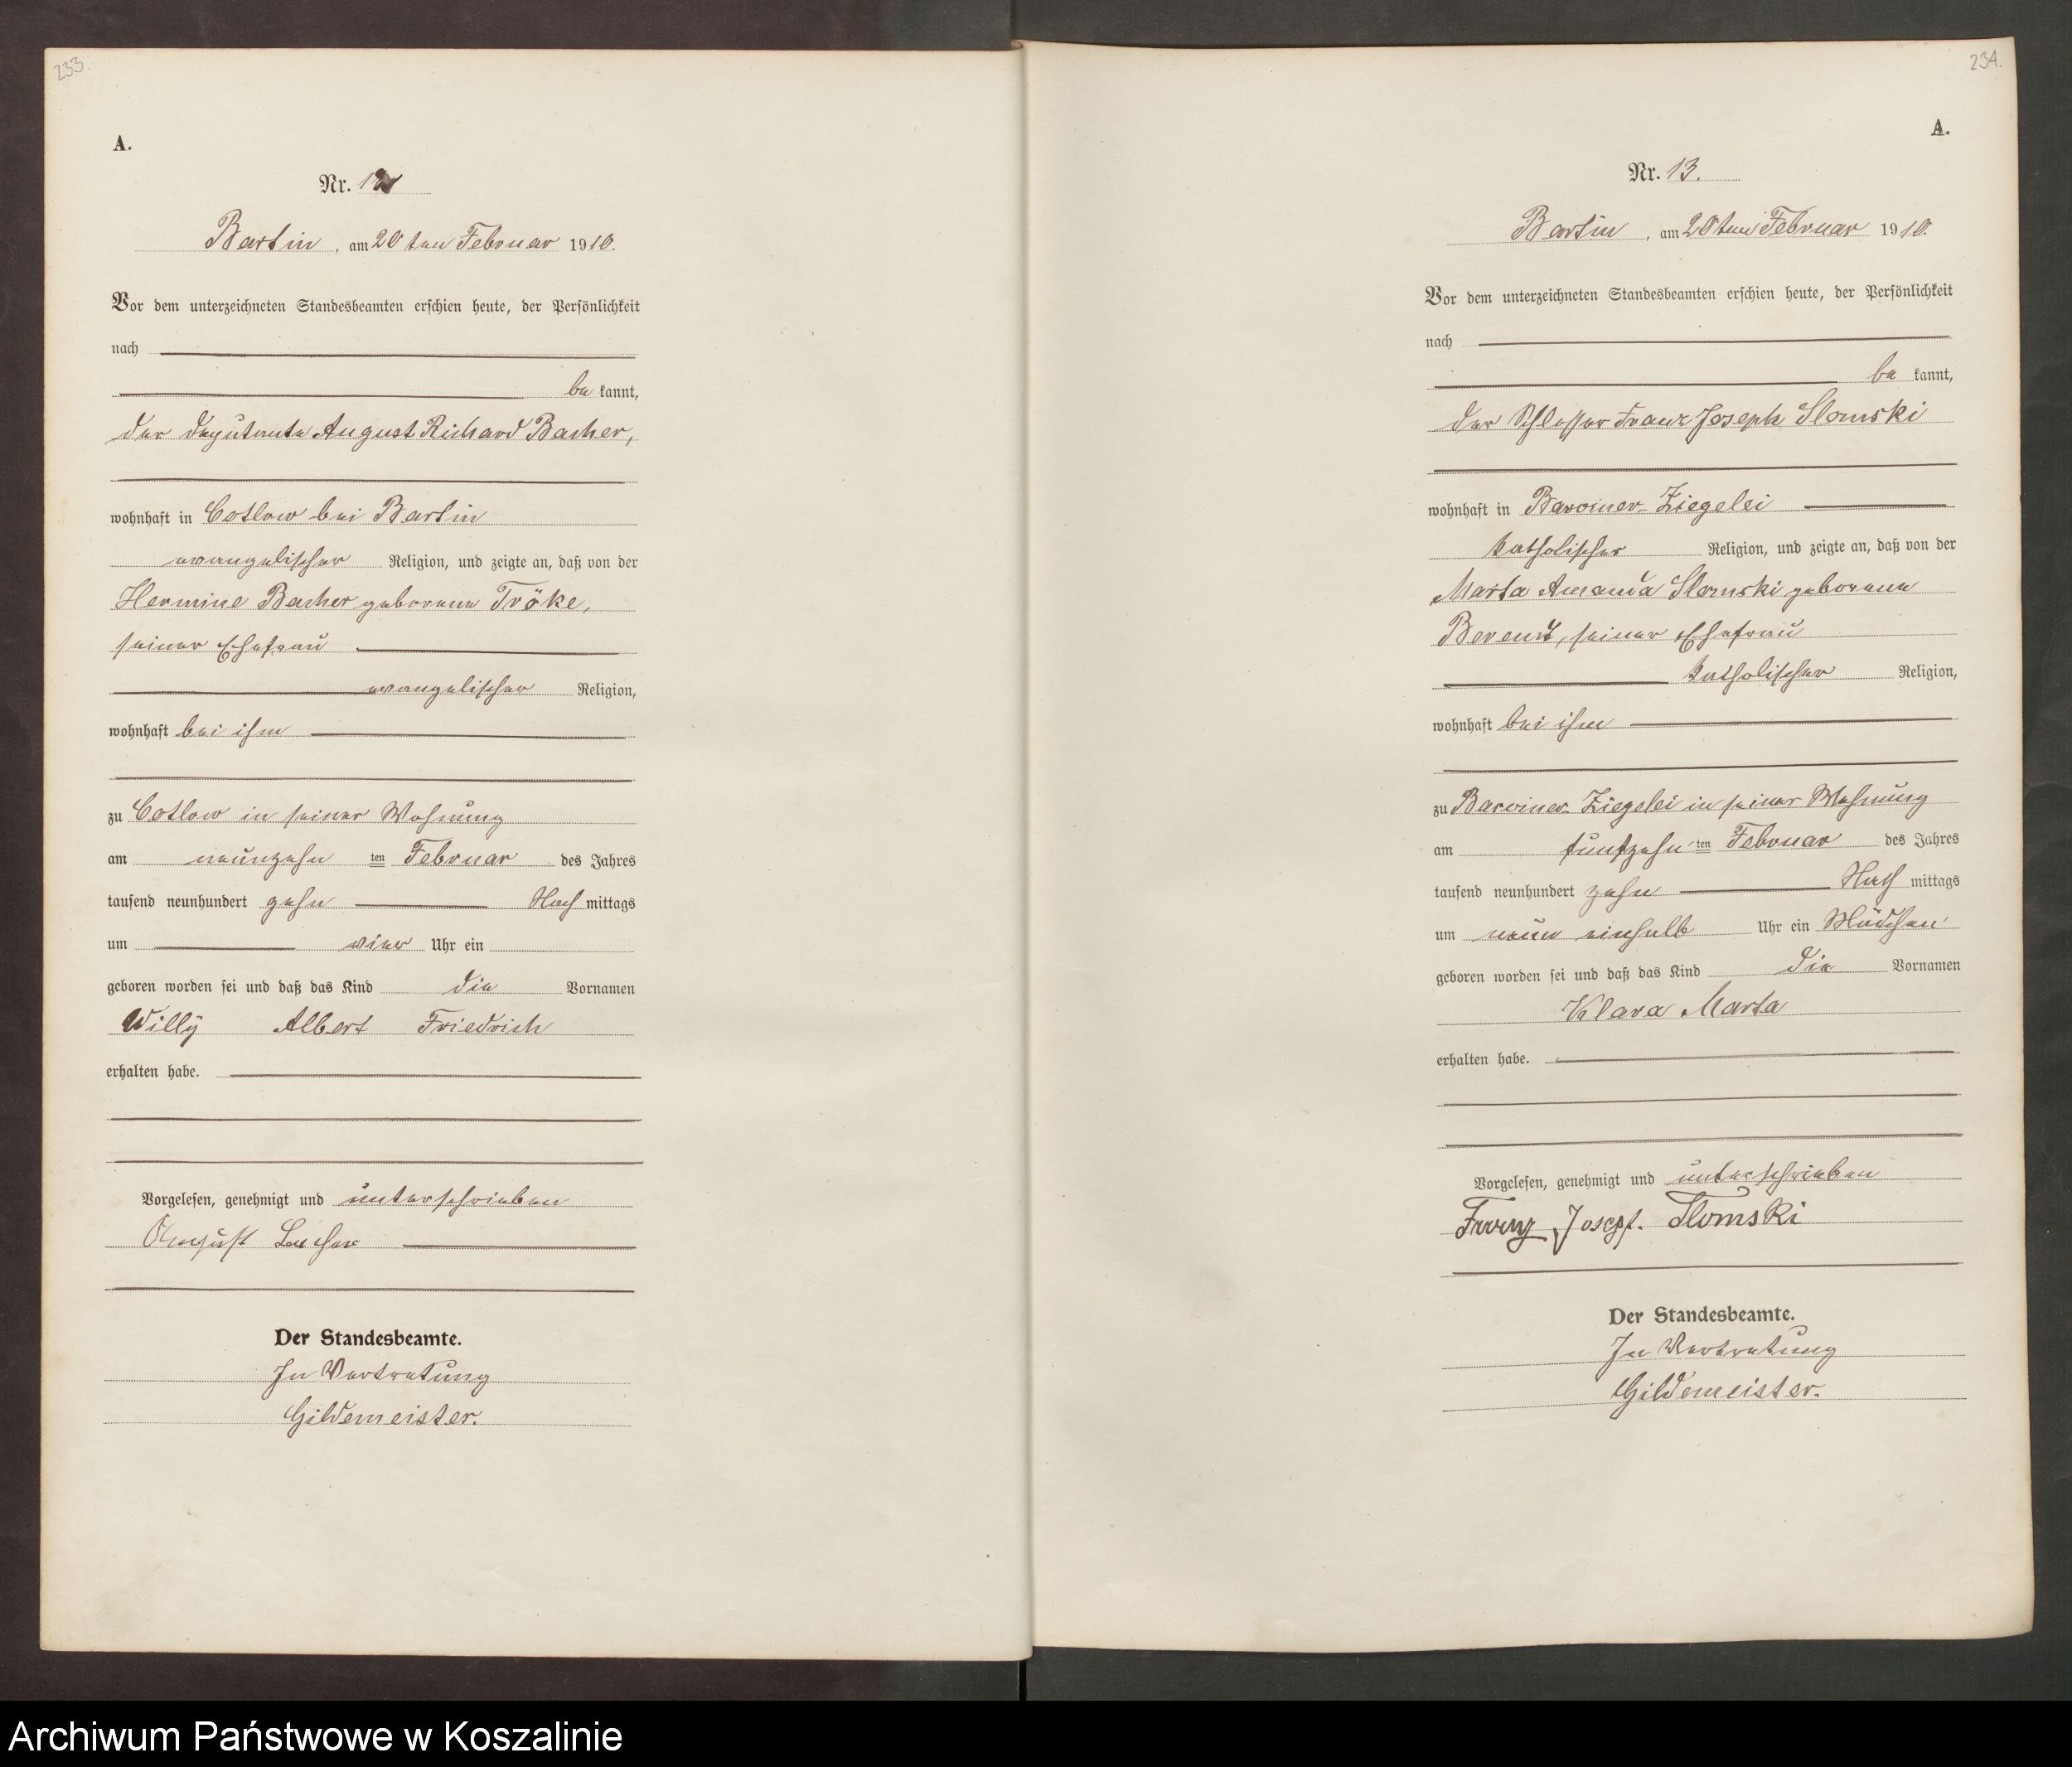 233.
A.
Nr. 12
Bartin, am 20ten Februar 1910.
Vor dem unterzeichneten Standesbeamten erschien heute, der Persönlichkeit
nach
be kannt,
der Deputante August Richard Bacher,
wohnhaft in Cotlow bei Bartin
evangelischer Religion, und zeigte an, daß von der
Hermine Bacher geborene Tröke,
seiner Ehefrau
evangelischer Religion,
wohnhaft bei ihm
zu Cotlow in seiner Wohnung
am neunzehn ten Februar des Jahres
tausend neunhundert zehn Nach mittags
um vier Uhr ein
geboren worden sei und daß das Kind die Vornamen
Willy Albert Friedrich
erhalten habe.
Vorgelesen, genehmigt und unterschrieben
August Bacher
Der Standesbeamte.
In Vertretung
Gildemeister.
234.
A.
Nr. 13.
Bartin, am 20ten Februar 1910.
Vor dem unterzeichneten Standesbeamten erschien heute, der Persönlichkeit
nach
be kannt,
der Schlosser Franz Joseph Slomski
wohnhaft in Barviner-Ziegelei
katholischer Religion, und zeigte an, daß von der
Marta Amanda Slomski geborene
Berendt, seiner Ehefrau
katholischer Religion,
wohnhaft bei ihm
zu Barviner-Ziegelei in seiner Wohnung
am fünfzehn ten Februar des Jahres
tausend neunhundert zehn Nach mittags
um neun einhalb Uhr ein Mädchen
geboren worden sei und daß das Kind die Vornamen
Klara Marta
erhalten habe.
Vorgelesen, genehmigt und unterschrieben
Franz Joseph. Slomski
Der Standesbeamte.
In Vertretung
Gildemeister.
Archiwum Państwowe w Koszalinie